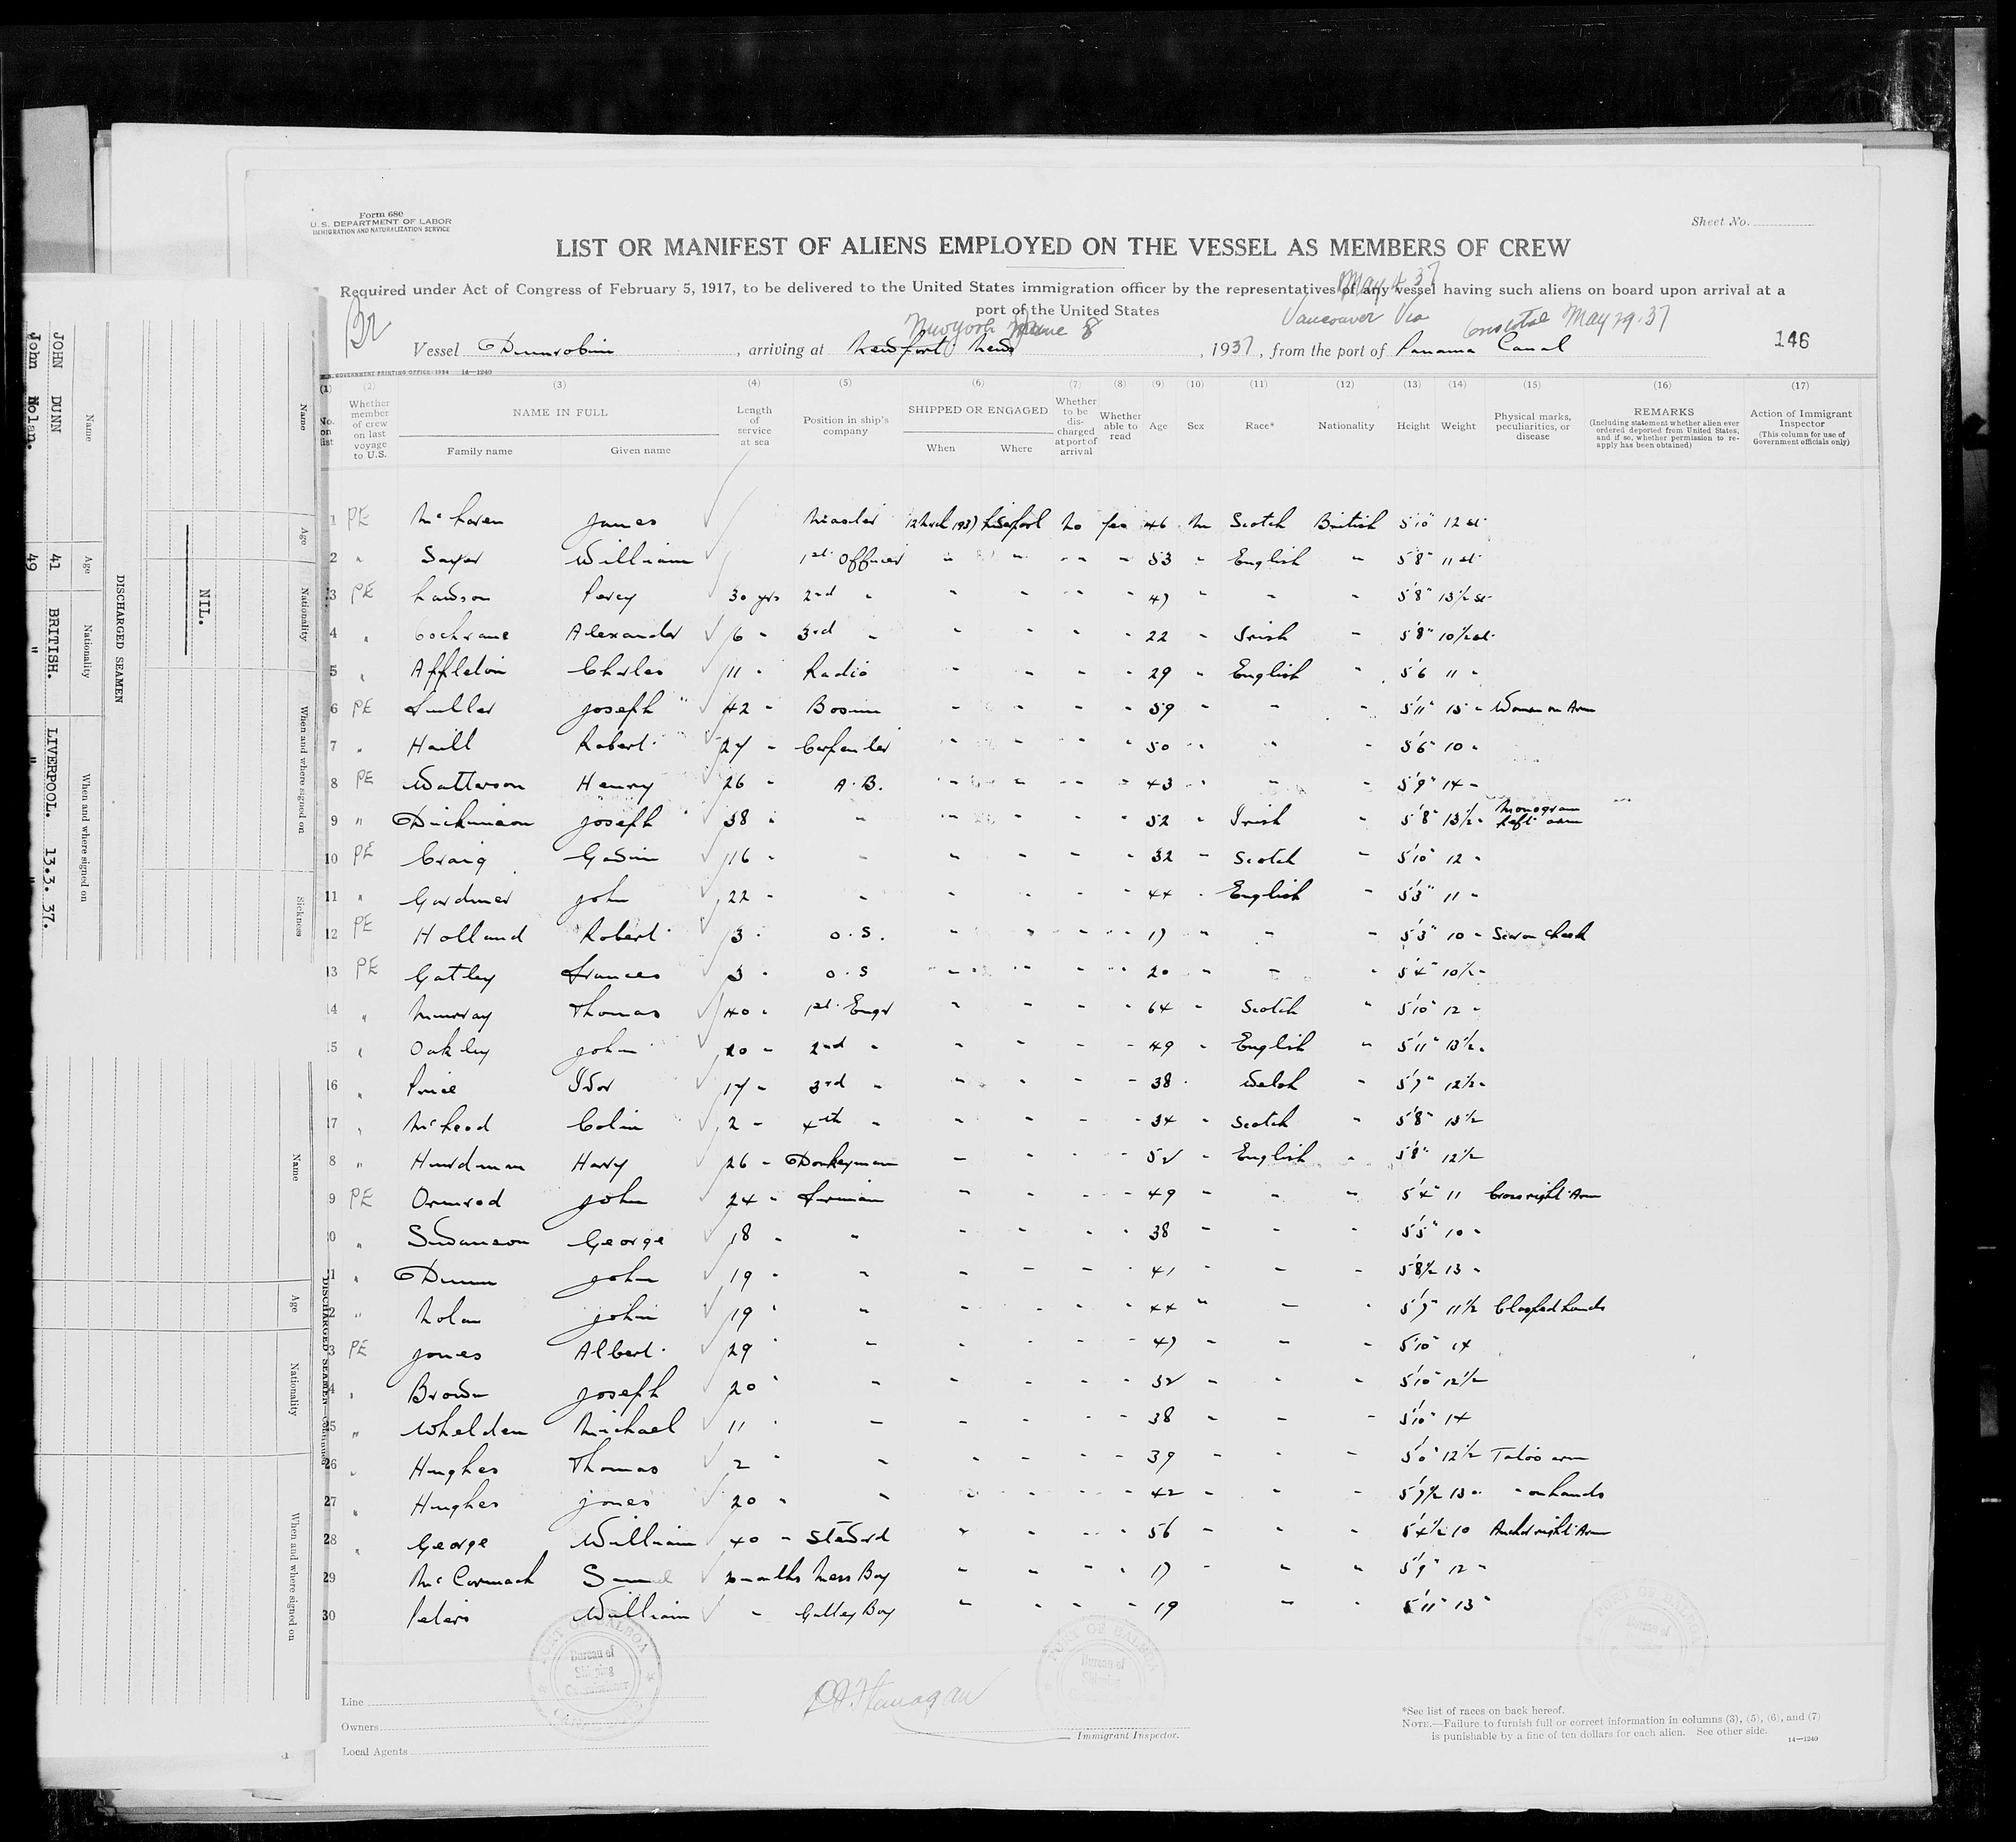 Form 680
U. S. DEPARTMENT OF LABOR
IMMIGRATION AND NATURALIZATION SERVICE
Sheet No.
LIST OR MANIFEST OF ALIENS EMPLOYED ON THE VESSEL AS MEMBERS OF CREW
Required under Act of Congress of February 5, 1917, to be delivered to the United States immigration officer by the representatives of any vessel having such aliens on board upon arrival at a
port of the United States
May 4 37
New York June 8 Vancouver Via Cristobal May 29.37
Vessel Dunrobin, arriving at Newport News, 1937, from the port of Panama Canal 146
U. S. GOVERNMENT PRINTING OFFICE: 1934 14—1240
(1) (2) (3) (4) (5) (6) (7) (8) (9) (10) (11) (12) (13) (14) (15) (16) (17)
No. on list
Whether member of crew on last voyage to U.S.
NAME IN FULL
Family name Given name
Length of service at sea
Position in ship's company
SHIPPED OR ENGAGED
When Where
Whether to be discharged at port of arrival
Whether able to read
Age Sex Race* Nationality Height Weight
Physical marks, peculiarities, or disease
REMARKS
(Including statement whether alien ever ordered deported from United States, and if so, whether permission to reapply has been obtained)
Action of Immigrant Inspector
(This column for use of Government officials only)
1 PE McLaren James Master 12 March 1937 Liverpool no yes 46 m Scotch British 5'10" 12 st
2 " Sayer William 1st Officer " " " " 53 " English " 5'8" 11 st
3 PE Lawson Percy 30 yrs 2nd " " " " " 47 " " " 5'8" 13½ st
4 " Cochrane Alexander 6 " 3rd " " " " " 22 " Irish " 5'8" 10½ st
5 " Appleton Charles 11 " Radio " " " " 29 " English " 5'6 11 "
6 PE Fuller Joseph 42 " Bosun " " " " 59 " " " 5'11" 15 " Woman on Arm
7 " Haill Robert 27 " Carpenter " " " " 50 " " " 5'6" 10 "
8 PE Watterson Henry 26 " A.B. " " " " 43 " " " 5'9" 14 "
9 " Dickinson Joseph 38 " " " " " " 52 " Irish " 5'8" 13½ " Monogram left arm
10 PE Craig Gavin 16 " " " " " " 32 " Scotch " 5'10" 12 "
11 " Gardiner John 22 " " " " " " 44 " English " 5'3" 11 "
12 PE Holland Robert 3 " O.S. " " " " 17 " " " 5'3" 10 " Scar on cheek
13 PE Gatley Frances 3 " O.S " " " " 20 " " " 5'4" 10½ "
14 " Murray Thomas 40 " 1st Engr " " " " 64 " Scotch " 5'10" 12 "
15 " Oakley John 20 " 2nd " " " " " 49 " English " 5'11" 13½ "
16 " Price Ivor 17 " 3rd " " " " " 38 " Welsh " 5'7" 12½ "
17 " McLeod Colin 2 " 4th " " " " " 34 " Scotch " 5'8" 13½
18 " Hurdman Harry 26 " Donkeyman " " " " 52 " English " 5'8" 12½
19 PE Ormrod John 24 " Fireman " " " " 49 " " " 5'4" 11 Cross right Arm
20 " Swanson George 18 " " " " " " 38 " " " 5'5" 10 "
21 " Dunn John 19 " " " " " " 41 " " " 5'8½ 13 "
22 " Nolan John 19 " " " " " " 44 " " " 5'7" 11½ Clasped hands
23 PE Jones Albert 29 " " " " " " 47 " " " 5'10" 14
24 " Brown Joseph 20 " " " " " " 32 " " " 5'10" 12½
25 " Whelden Michael 11 " " " " " " 38 " " " 5'10" 14
26 " Hughes Thomas 2 " " " " " " 39 " " " 5'0" 12½ Tatoo arm
27 " Hughes Jones 20 " " " " " " 42 " " " 5'7½ 13 " " on hands
28 " George William 40 " Steward " " " " 56 " " " 5'4½ 10 Anchor right Arm
29 McCormack months Mess Boy " " " " 17 " " " 5'9" 12 "
30 Peters William " Galley Boy " " " " 19 " " 5'11" 13 "
PORT OF BALBOA
Bureau of
Shipping
Commissioner
PORT OF BALBOA
Bureau of
PORT OF BALBOA
Bureau of
Line
Owners
Local Agents
Flanagan
Immigrant Inspector.
*See list of races on back hereof.
NOTE.—Failure to furnish full or correct information in columns (3), (5), (6), and (7)
is punishable by a fine of ten dollars for each alien. See other side.
14—1240
DISCHARGED SEAMEN
Name Age Nationality When and where signed on
JOHN DUNN 41 BRITISH. LIVERPOOL. 13.3.37.
John Nolan. 49 " " "
Name Age Nationality When and where signed on Sickness
NIL.
DISCHARGED SEAMEN—Continued
Name Age Nationality When and where signed on